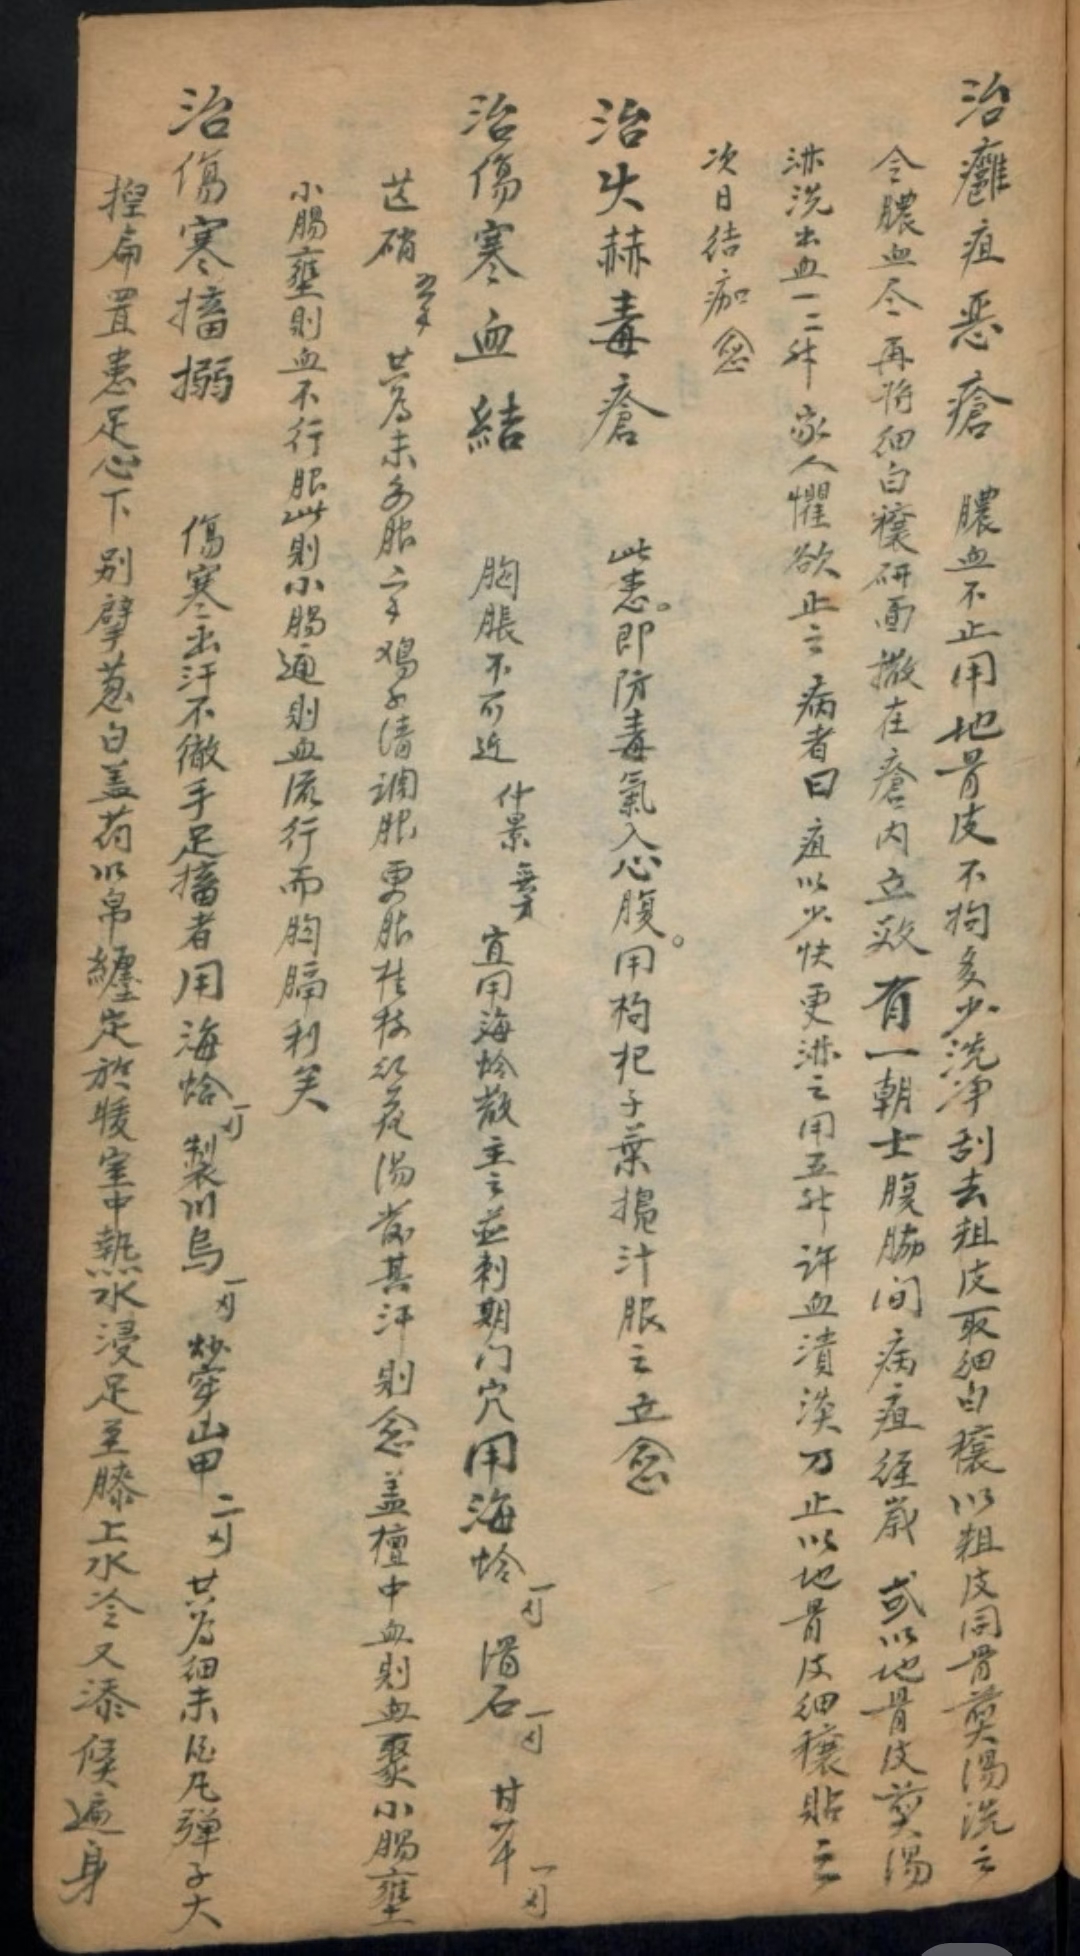 治癰疽惡瘡 膿血不止用地骨皮不拘多少洗淨刮去粗皮取細白穰以粗皮同骨煎湯洗之
令膿血尽再將細白穰研面撒在瘡內立效有一朝士腹胁间病疽经歲或以地骨皮煎湯
淋洗出血一二升家人懼欲止之病者曰疽以少快更淋之用五升许血漬淡乃止以地骨皮細穰貼之
次日结痂愈
治失赫毒瘡 此患。即防毒氣入心腹。用枸杞子葉搗汁服之立愈
治傷寒血結 胸脹不可近 仲景無方 宜用海蛤散主之並刺期门穴用海蛤一刃 滑石一刃 甘草一刃
芒硝 共为末每服二子鸡子清调服更服桂枝红花湯发其汗则愈盖檀中血则血聚小腸壅
小腸壅则血不行服此则小腸通则血流行而胸膈利矣
治傷寒搐搦 傷寒出汗不徹手足搐者用海蛤一刃 製川烏一刃 炒穿山甲二刃 共为细末酒凡弹子大
捏扁置患足心下别擘葱白盖药以帛纏定於暖室中熱水浸足至膝上水冷又添候遍身